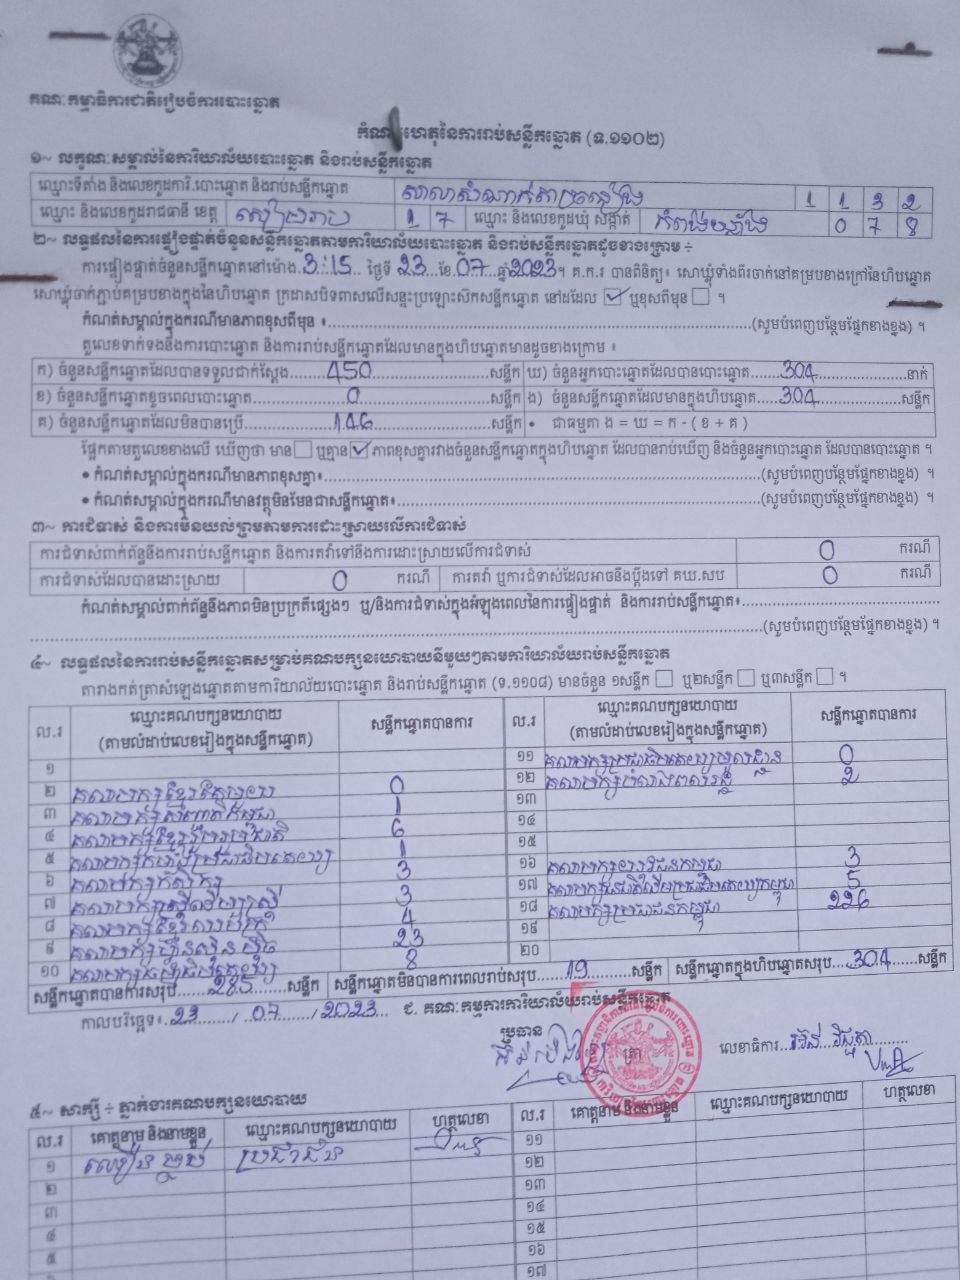 គណៈកម្មាធិការជាតិរៀបចំការបោះឆ្នោត
កំណ ហេតុនៃការរាប់សន្លឹកឆ្នោត (ទ.១១០២)
១~ លក្ខណៈសម្គាល់នៃការិយាល័យបោះឆ្នោត និងរាប់សន្លឹកឆ្នោត
ឈ្មោះទីតាំង និងលេខកូដការិ.បោះឆ្នោត និងរាប់សន្លឹកឆ្នោត 1 1 3 2
ឈ្មោះ និងលេខកូដរាជធានី ខេត្ត សៀមរាប 1 7 ឈ្មោះ និងលេខកូដឃុំ សង្កាត់ 0 7 8
២~ លទ្ធផលនៃការផ្ទៀងផ្ទាត់ចំនួនសន្លឹកឆ្នោតតាមការិយាល័យបោះឆ្នោត និងរាប់សន្លឹកឆ្នោតដូចខាងក្រោម ÷
ការផ្ទៀងផ្ទាត់ចំនួនសន្លឹកឆ្នោតនៅម៉ោង 3:15 ថ្ងៃទី 23 ខែ 07 ឆ្នាំ 2023។ គ.ក.រ បានពិនិត្យ៖ សោឃ្លុំទាំងពីរចាក់នៅគម្របខាងក្រៅនៃហិបឆ្នោត
សោឃ្លុំចាក់ភ្ជាប់គម្របខាងក្នុងនៃហិបឆ្នោត ក្រដាសបិទពាសលើសន្ទះប្រឡោះស៊កសន្លឹកឆ្នោត នៅដដែល ☑ ឬខុសពីមុន ☐ ។
កំណត់សម្គាល់ក្នុងករណីមានភាពខុសពីមុន ៖ (សូមបំពេញបន្ថែមផ្នែកខាងខ្នង) ។
តួលេខទាក់ទងនឹងការបោះឆ្នោត និងការរាប់សន្លឹកឆ្នោតដែលមានក្នុងហិបឆ្នោតមានដូចខាងក្រោម ៖
ក) ចំនួនសន្លឹកឆ្នោតដែលបានទទួលជាក់ស្តែង 450 សន្លឹក ឃ) ចំនួនអ្នកបោះឆ្នោតដែលបានបោះឆ្នោត 304 នាក់
ខ) ចំនួនសន្លឹកឆ្នោតខូចពេលបោះឆ្នោត 0 សន្លឹក ង) ចំនួនសន្លឹកឆ្នោតដែលមានក្នុងហិបឆ្នោត 304 សន្លឹក
គ) ចំនួនសន្លឹកឆ្នោតដែលមិនបានប្រើ 146 សន្លឹក • ជាធម្មតា ង = ឃ = ក - ( ខ + គ )
ផ្អែកតាមតួលេខខាងលើ ឃើញថា មាន ☐ ឬគ្មាន ☑ ភាពខុសគ្នារវាងចំនួនសន្លឹកឆ្នោតក្នុងហិបឆ្នោត ដែលបានរាប់ឃើញ និងចំនួនអ្នកបោះឆ្នោត ដែលបានបោះឆ្នោត ។
• កំណត់សម្គាល់ក្នុងករណីមានភាពខុសគ្នា៖ (សូមបំពេញបន្ថែមផ្នែកខាងខ្នង) ។
• កំណត់សម្គាល់ក្នុងករណីមានវត្ថុមិនមែនជាសន្លឹកឆ្នោត៖ (សូមបំពេញបន្ថែមផ្នែកខាងខ្នង) ។
៣~ ការជំទាស់ និងការមិនយល់ព្រមតាមការដោះស្រាយលើការជំទាស់
ការជំទាស់ពាក់ព័ន្ធនឹងការរាប់សន្លឹកឆ្នោត និងការតវ៉ាទៅនឹងការដោះស្រាយលើការជំទាស់ 0 ករណី
ការជំទាស់ដែលបានដោះស្រាយ 0 ករណី ការតវ៉ា ឬការជំទាស់ដែលអាចនឹងប្តឹងទៅ គឃ.សប 0 ករណី
កំណត់សម្គាល់ពាក់ព័ន្ធនឹងភាពមិនប្រក្រតីផ្សេងៗ ឬ/និងការជំទាស់ក្នុងអំឡុងពេលនៃការផ្ទៀងផ្ទាត់ និងការរាប់សន្លឹកឆ្នោត៖
(សូមបំពេញបន្ថែមផ្នែកខាងខ្នង) ។
៤~ លទ្ធផលនៃការរាប់សន្លឹកឆ្នោតសម្រាប់គណបក្សនយោបាយនីមួយៗតាមការិយាល័យរាប់សន្លឹកឆ្នោត
តារាងកត់ត្រាសំឡេងឆ្នោតតាមការិយាល័យបោះឆ្នោត និងរាប់សន្លឹកឆ្នោត (ទ.១១០៨) មានចំនួន ១សន្លឹក ☐ ឬ២សន្លឹក ☐ ឬ៣សន្លឹក ☐ ។
ល.រ ឈ្មោះគណបក្សនយោបាយ (តាមលំដាប់លេខរៀងក្នុងសន្លឹកឆ្នោត) សន្លឹកឆ្នោតបានការ ល.រ ឈ្មោះគណបក្សនយោបាយ (តាមលំដាប់លេខរៀងក្នុងសន្លឹកឆ្នោត) សន្លឹកឆ្នោតបានការ
១
២ គណបក្សខ្មែរតែមួយ 0
៣ គណបក្ស 1
៤ គណបក្សខ្មែររួបរួមជាតិ 6
៥ គណបក្ស 1
៦ គណបក្សកសិករ 3
៧ គណបក្ស 3
៨ គណបក្ស 4
៩ គណបក្សហ្វ៊ុនស៊ិនប៉ិច 23
១០ គណបក្ស 8
១១ គណបក្សប្រជាធិបតេយ្យមូលដ្ឋាន 0
១២ គណបក្ស 2
១៣
១៤
១៥
១៦ គណបក្សយុវជនកម្ពុជា 3
១៧ គណបក្ស 5
១៨ គណបក្សប្រជាជនកម្ពុជា 226
១៩
២០
សន្លឹកឆ្នោតបានការសរុប 285 សន្លឹក សន្លឹកឆ្នោតមិនបានការពេលរាប់សរុប 19 សន្លឹក សន្លឹកឆ្នោតក្នុងហិបឆ្នោតសរុប 304 សន្លឹក
កាលបរិច្ឆេទ៖ 23 / 07 / 2023 ជ. គណៈកម្មការការិយាល័យរាប់សន្លឹកឆ្នោត
ប្រធាន
ត្រា
លេខាធិការ
៥~ សាក្សី ÷ ភ្នាក់ងារគណបក្សនយោបាយ
ល.រ គោត្តនាម និងនាមខ្លួន ឈ្មោះគណបក្សនយោបាយ ហត្ថលេខា ល.រ គោត្តនាម និងនាមខ្លួន ឈ្មោះគណបក្សនយោបាយ ហត្ថលេខា
១ ប្រជាជន ១១
២ ១២
៣ ១៣
៤ ១៤
៥ ១៥
១៦
១៧